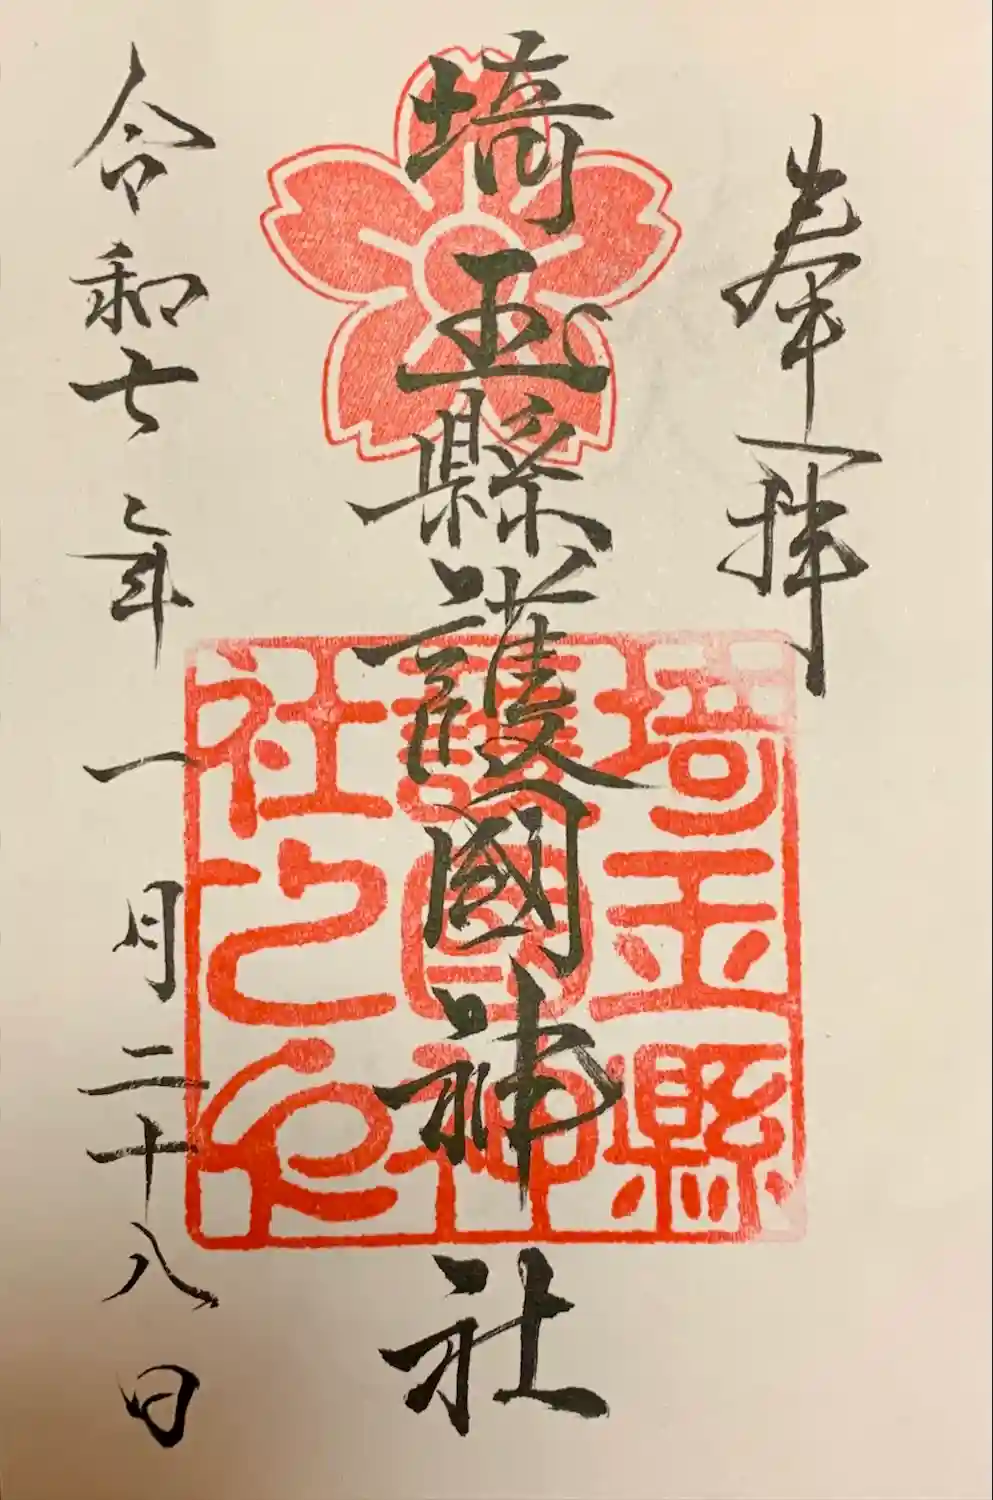 奉拝
埼玉縣護國神社
埼玉縣
護國神
社之印
令和七年一月二十八日